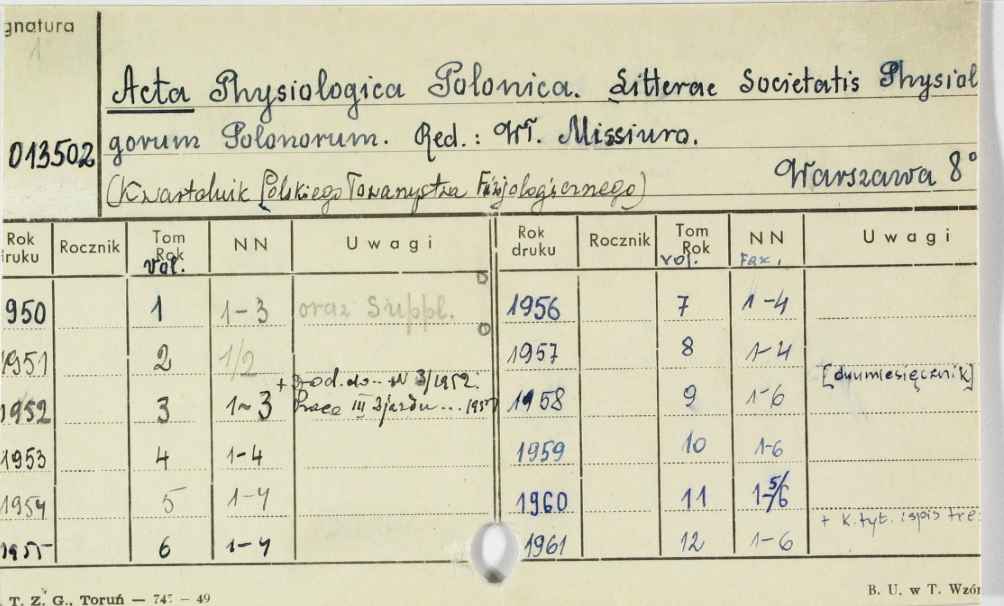 gnatura
1
Acta Physiologica Polonica. Litterae Societatis Physiol
013502 gorum Polonorum. Red.: Wł. Missiuro.
(Kwartalnik Polskiego Towarzystwa Fizjologicznego) Warszawa 8°
Rok druku Rocznik Tom Rok Vol. NN Uwagi Rok druku Rocznik Tom Rok vol. NN Fax. Uwagi
950 1 1-3 oraz Suppl. 1956 7 1-4
1951 2 1/2 1957 8 1-4
+ dod. do N 3/1952: [dwumiesięcznik]
1952 3 1-3 Prace III Zjazdu... 1958 9 1-6
1953 4 1-4 1959 10 1-6
1954 5 1-4 1960 11 1-5/6
+ k. tyt. i spis tre
1955 6 1-4 1961 12 1-6
T. Z. G., Toruń — 747 — 49 B. U. w T. Wzór